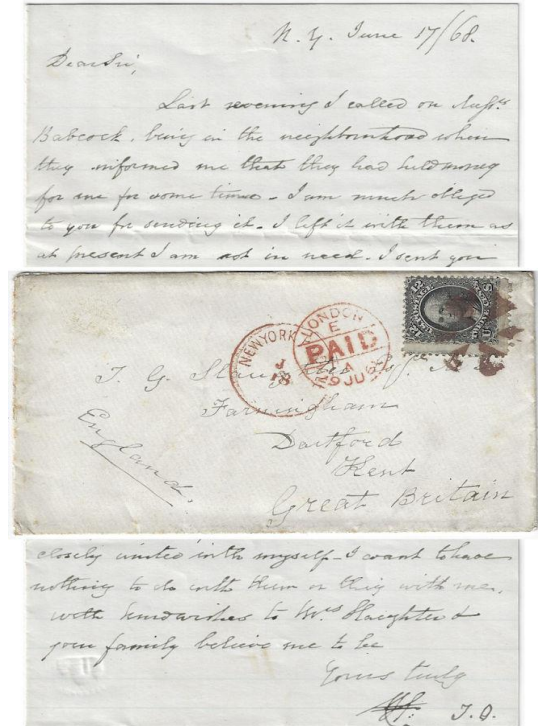 N. Y. June 17/68.
Dear Sir,
Last evening I called on Mess.rs
Babcock, being in the neighbourhood when
they informed me that they had held money
for me for some time - I am much obliged
to you for sending it - I left it with them as
at present I am not in need. I sent you
NEW YORK
J
18
LONDON
E
PAID
A
JU 68
12 12
U.S. POSTAGE
T. G. Slaughter
Farningham
Dartford
Kent
Great Britain
England,
closely united with myself - I want to have
nothing to do with them or they with me.
with kind wishes to Mrs Slaughter &
your family believe me to be
Yours truly
J. O.